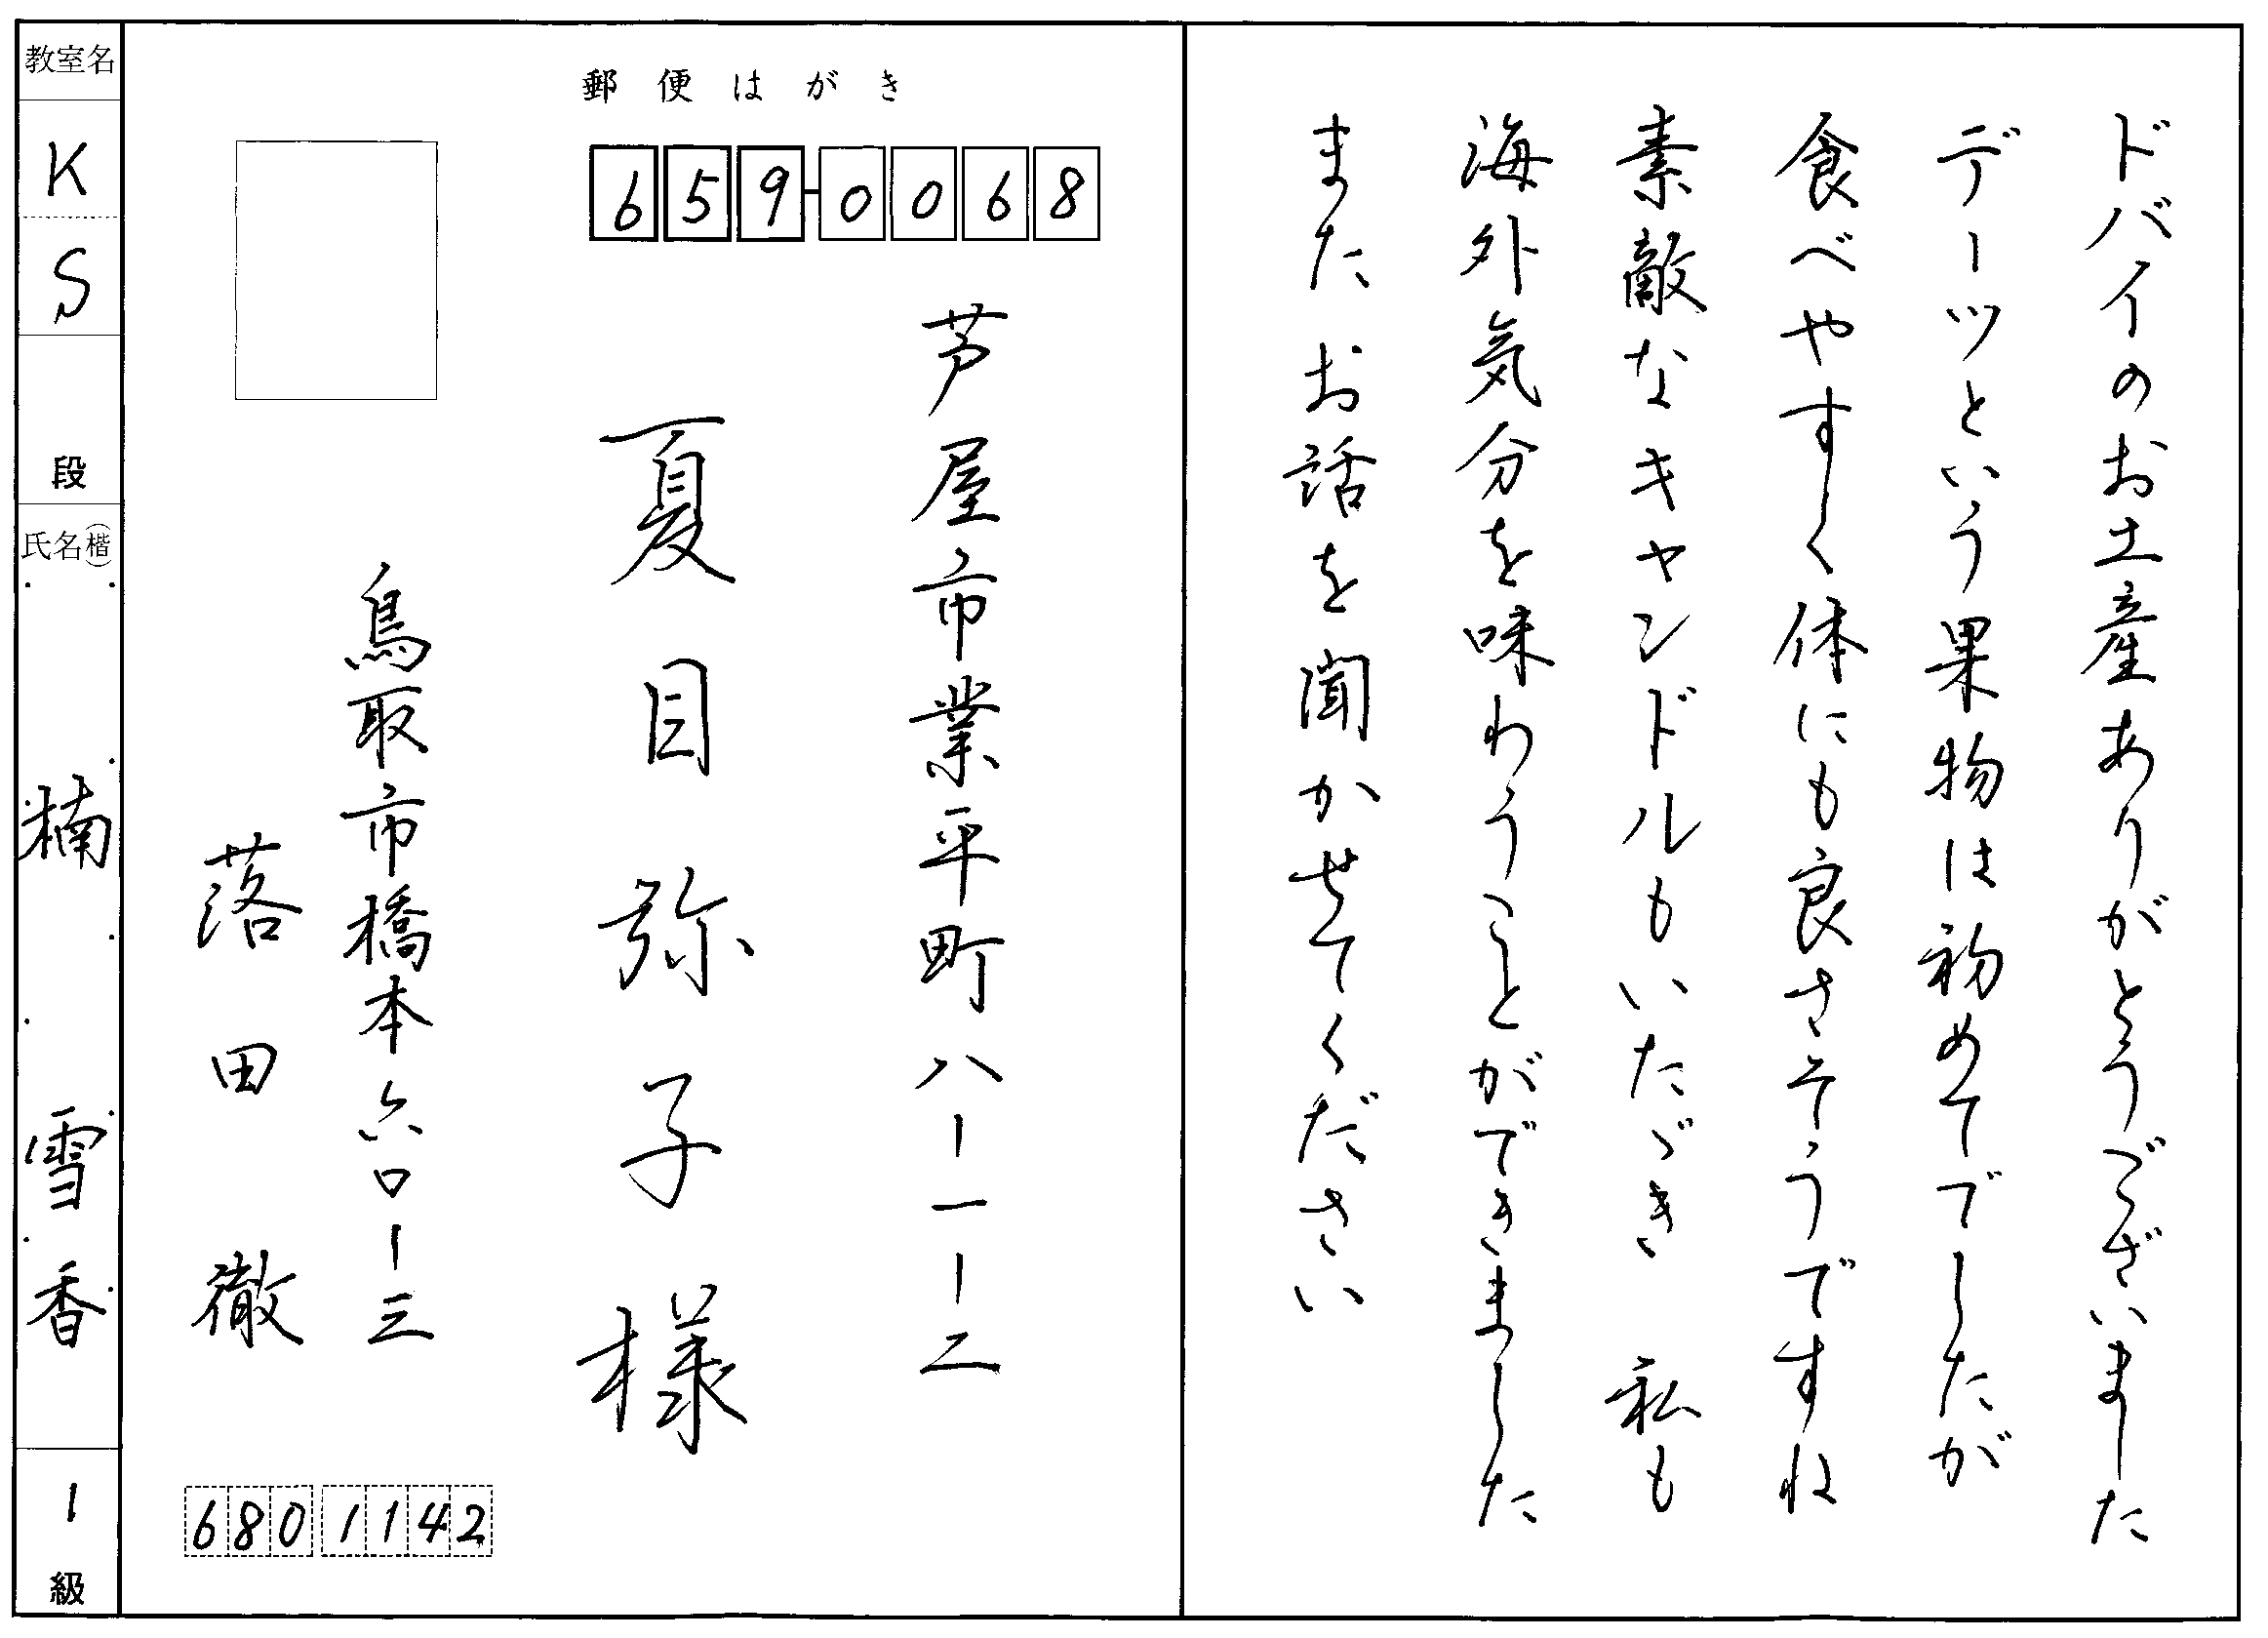 ドバイのお土産ありがとうございました
デーツという果物は初めてでしたが
食べやすく体にも良さそうですね
素敵なキャンドルもいたゞき 私も
海外気分を味わうことができました
また お話を聞かせてください
郵便はがき
659-0068
芦屋市業平町八ー一ー二
夏目弥子様
鳥取市橋本六〇ー三
落田徹
680 1142
教室名
KS
段
氏名(楷)
楠 雪香
1
級